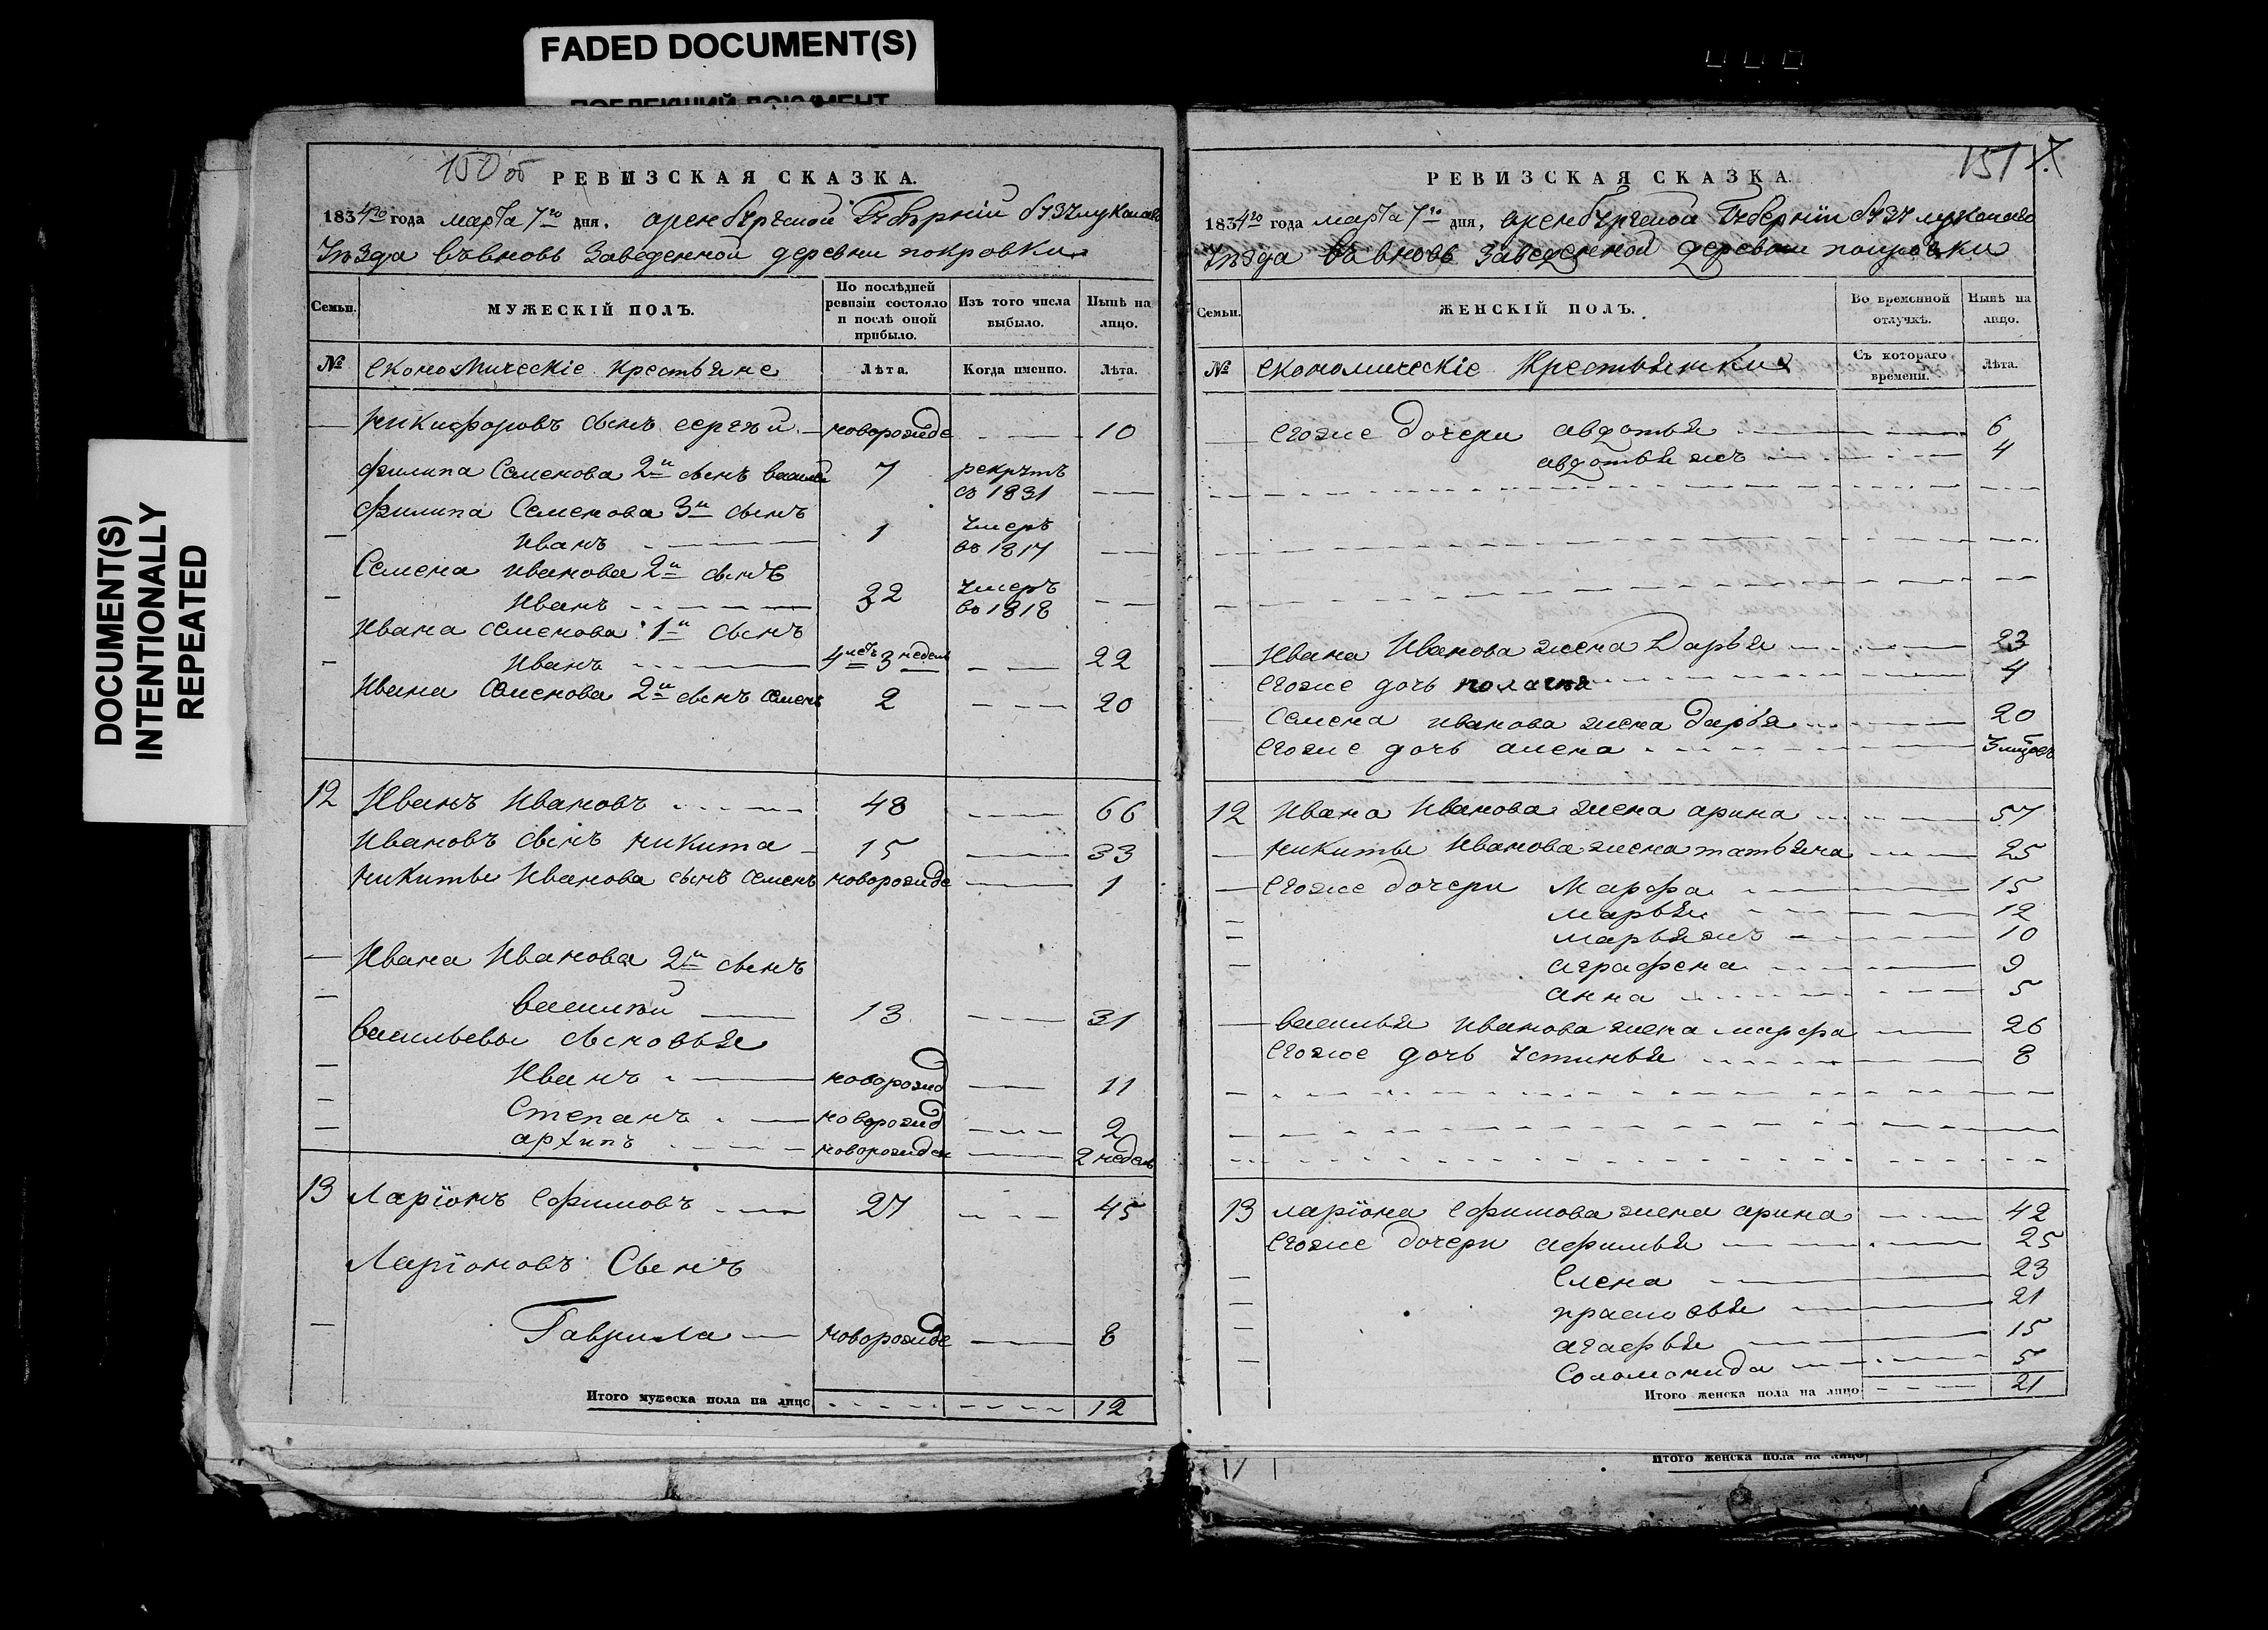 FADED DOCUMENT(S)
DOCUMENT(S)
INTENTIONALLY
REPEATED
150 об
РЕВИЗСКАЯ СКАЗКА.
1834го года марта 7го дня. оренбургской Губернии бузулукскаго
Уѣзда въвновь Заведенной деревни покровки
Семьи.
МУЖЕСКІЙ ПОЛЪ.
По послѣдней ревизіи состояло и послѣ оной прибыло.
Изъ того числа выбыло.
Нынѣ на лицо.
№ економическіе крестьяне Лѣта. Когда именно. Лѣта.
никифоровъ сынъ сергѣй новорожде 10
филипа Семенова 2й сынъ василей 7 рекрутъ
съ 1831
филипа Семенова 3й сынъ
иванъ 1 умеръ
въ 1817
Семена иванова 2й сынъ
иванъ 22 умеръ
въ 1818
Ивана семенова 1й сынъ
Иванъ 4 летъ 3 недель 22
Ивана Семенова 2й сынъ семенъ 2 20
12 Иванъ Ивановъ 48 66
Ивановъ сынъ никита 15 33
никиты Иванова сынъ семенъ новорожде 1
Ивана Иванова 2й сынъ
василѣй 13 31
васильевы сыновья
Иванъ новорожд 11
Степанъ новорожд 2
архипъ новорожден 2 недель
13 Ларіонъ Ефимовъ 27 45
Ларіоновъ Сынъ
Гаврила новорожде 8
Итого мужеска пола на лицо 12
151
РЕВИЗСКАЯ СКАЗКА.
1834го года марта 7го дня, оренбургской Губерніи бузулукскаго
Уѣзда въ вновь Заведенной деревни покровки
Семьи.
ЖЕНСКІЙ ПОЛЪ.
Во временной отлучкѣ.
Нынѣ на лицо.
№ економическіе Крестьянки Съ котораго времени. Лѣта.
егоже дочери авдотья 6
авдотья жъ 4
Ивана Иванова жена Дарья 23
егоже дочь 4
Семена иванова жена дарья 20
егоже дочь алена 3 мцовъ
12 Ивана Иванова жена арина 57
никиты Иванова жена татьяна 25
егоже дочери Марфа 15
марья 12
марья жъ 10
аграфена 9
анна 5
василья иванова жена марфа 26
егоже дочь устинья 8
13 ларіона ефимова жена арина 42
егоже дочери афимья 25
Елена 23
прасковья 21
агафья 15
Соломонида 5
Итого женска пола на лицо 21
Итого женска пола на лицо